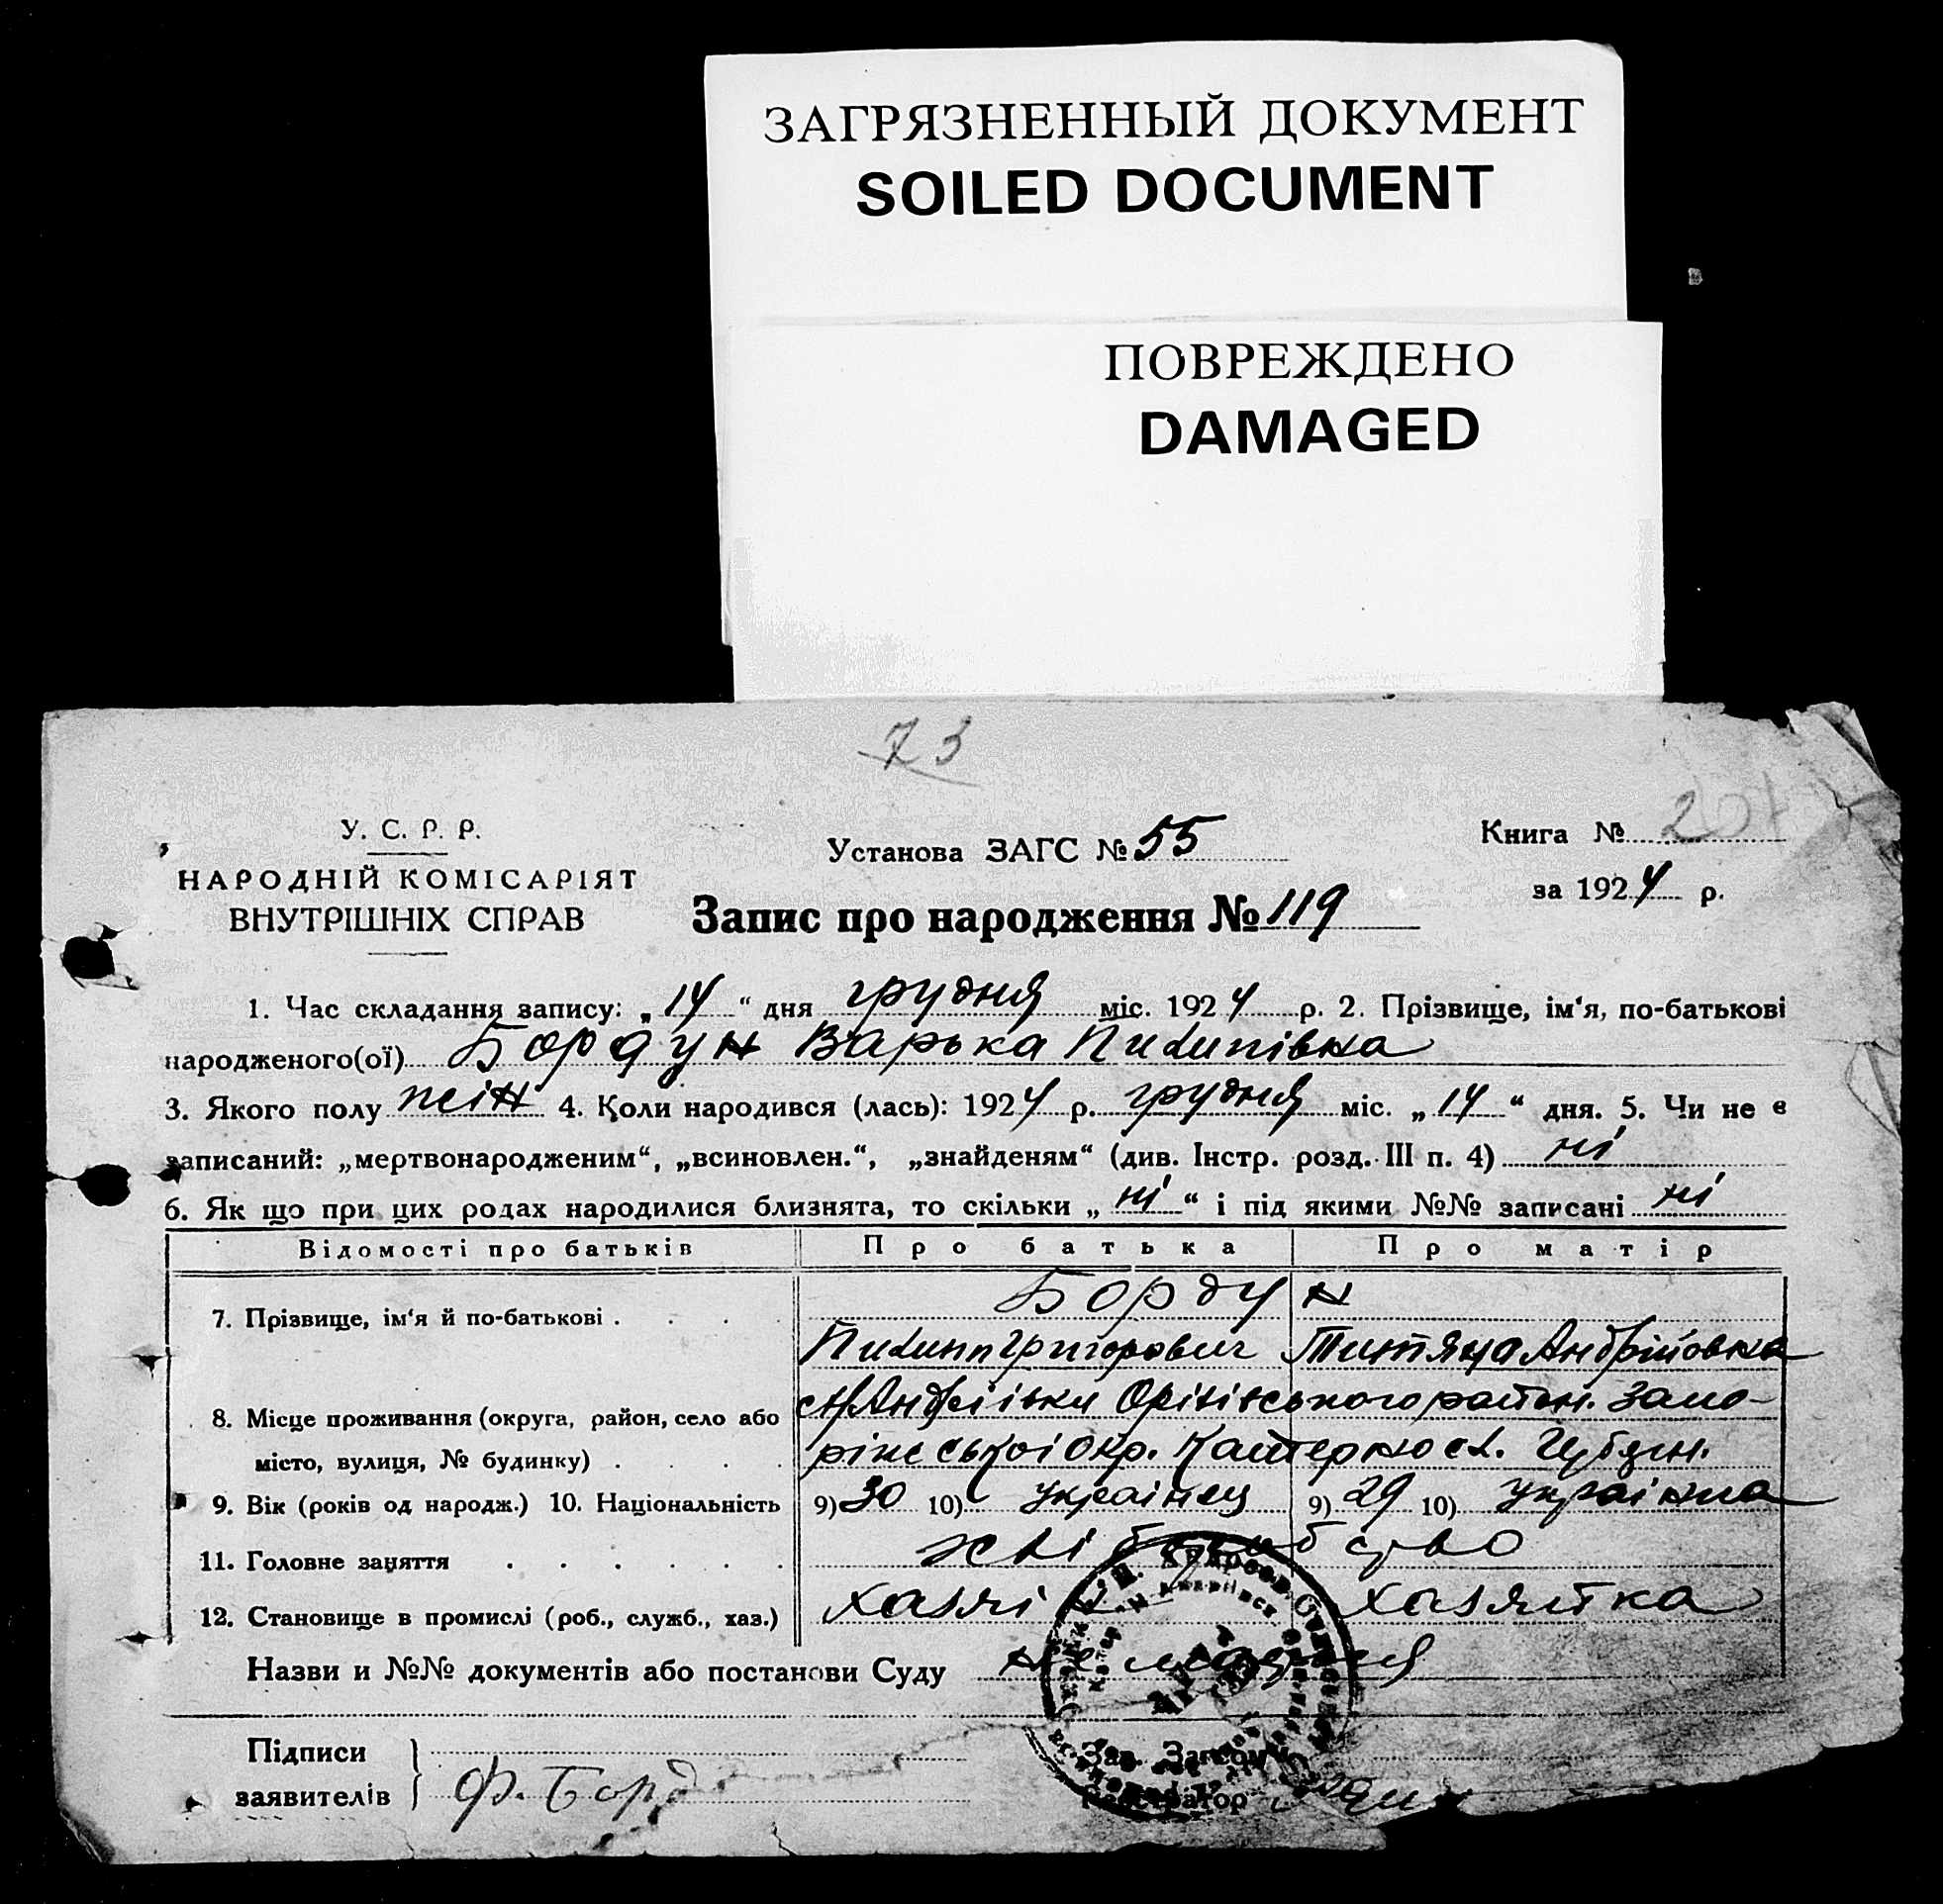 ЗАГРЯЗНЕННЫЙ ДОКУМЕНТ
SOILED DOCUMENT
ПОВРЕЖДЕНО
DAMAGED
73
У. С. Р. Р.
НАРОДНІЙ КОМІСАРІЯТ
ВНУТРІШНІХ СПРАВ
Установа ЗАГС № 55
Запис про народження № 119
Книга № 207
за 1924 р.
1. Час складання запису: „14“ дня грудня міс. 1924 р. 2. Прізвище, ім‘я, по-батькові
народженого(ої) Бордун Варька Пилипівна
3. Якого полу жін 4. Коли народився (лась): 1924 р. грудня міс. „14“ дня. 5. Чи не є
записаний: „мертвонародженим“, „всиновлен.“, „знайденям“ (див. Інстр. розд. III п. 4) ні
6. Як що при цих родах народилися близнята, то скільки „ні“ і під якими №№ записані ні
Відомості про батьків Про батька Про матір
7. Прізвище, ім‘я й по-батькові . . . . Бордун
Пилип Григорович Титяна Андрійовна
8. Місце проживання (округа, район, село або
місто, вулиця, № будинку) . . . .
9. Вік (років од народж.) 10. Національність 9) 30 10) українец 9) 29 10) українка
11. Головне заняття . . . . . .
12. Становище в промислі (роб., служб., хаз.) хазяїн хазяйка
Назви и №№ документів або постанови Суду
Підписи
заявителів
Ф. Борд
Зав. Загсом
Реєстратор